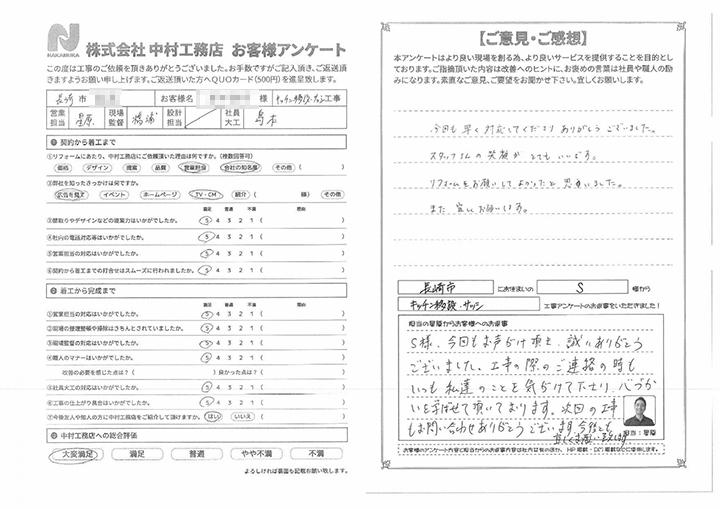 NAKAMURA
株式会社 中村工務店 お客様アンケート
この度は工事のご依頼を頂きありがとうございました。お手数ですがご記入頂き、ご返送頂
きますようお願い申し上げます。ご返送頂いた方へQUOカード(500円)を進呈致します。
長崎 市 お客様名 様 キッチン移設・サッシ工事
営業担当 星原 現場監督 橋浦 設計担当 社員大工 島本
❶ 契約から着工まで
①リフォームにあたり、中村工務店にご依頼頂いた理由は何ですか。(複数回答可)
価格 デザイン 提案 品質 営業担当 会社の知名度 その他 ( )
②弊社を知ったきっかけは何ですか。
広告を見て イベント ホームページ TV・CM 紹介 ( 様) その他
満足 普通 不満 理由
③間取りやデザインなどの提案力はいかがでしたか。 5 4 3 2 1 ( )
④社内の電話対応等はいかがでしたか。 5 4 3 2 1 ( )
⑤営業担当の対応はいかがでしたか。 5 4 3 2 1 ( )
⑥契約から着工までの打合せはスムーズに行われましたか。 5 4 3 2 1 ( )
❷ 着工から完成まで
満足 普通 不満 理由
①営業担当の対応はいかがでしたか。 5 4 3 2 1 ( )
②現場の整理整頓や掃除はきちんとされていましたか。 5 4 3 2 1 ( )
③現場監督の対応はいかがでしたか。 5 4 3 2 1 ( )
④職人のマナーはいかがでしたか。 5 4 3 2 1 ( )
改善の必要を感じた点は?( ) 良かった点は?( )
⑤社員大工の対応はいかがでしたか。 5 4 3 2 1 ( )
⑥工事の仕上がり具合はいかがでしたか。 5 4 3 2 1 ( )
⑦今後友人や知人の方に中村工務店をご紹介して頂けますか。 はい いいえ ( )
❸ 中村工務店への総合評価
大変満足 満足 普通 やや不満 不満
よろしければ裏面も記載お願い致します。
【ご意見・ご感想】
本アンケートはより良い現場を創る為、より良いサービスを提供することを目的とし
ております。ご指摘頂いた内容は改善へのヒントに、お褒めの言葉は社員や職人の励
みになります。素直なご意見、ご要望をお聞かせ下さい。宜しくお願いします。
今回も早く対応してくださりありがとうございました。
スタッフさんの笑顔がとてもいいです。
リフォームをお願いしてよかったと思いました。
また宜しくお願いします。
長崎市 にお住まいの S 様から
キッチン移設・サッシ 工事アンケートのお返事をいただきました!
担当の星原からお客様へのお返事
S様、今回もお声がけ頂き、誠にありがとう
ございました。工事の際のご連絡の時も
いつも私達のことを気づけて下さり、心づか
いを学ばせて頂いております。次回の工事
もお問い合わせありがとうございます。今後とも
宜しくお願い致します。
担当:星原